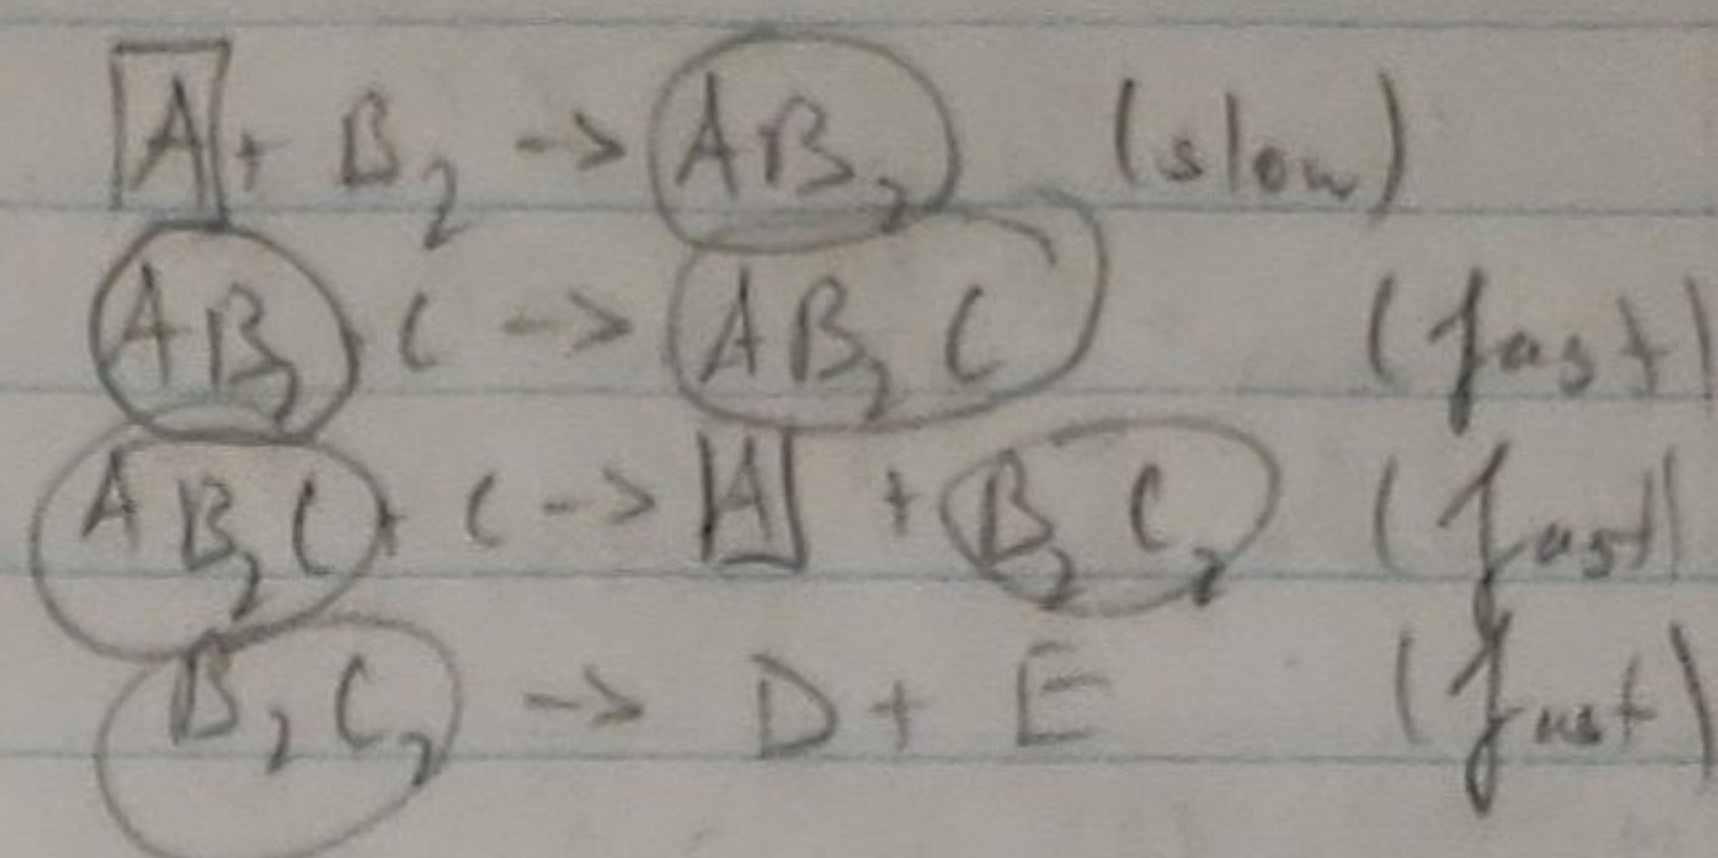 A + B₂ -> AB₂ (slow)
AB₂ + C -> AB₂C (fast)
AB₂C + C -> A + B₂C₂ (fast)
B₂C₂ -> D + E (fast)